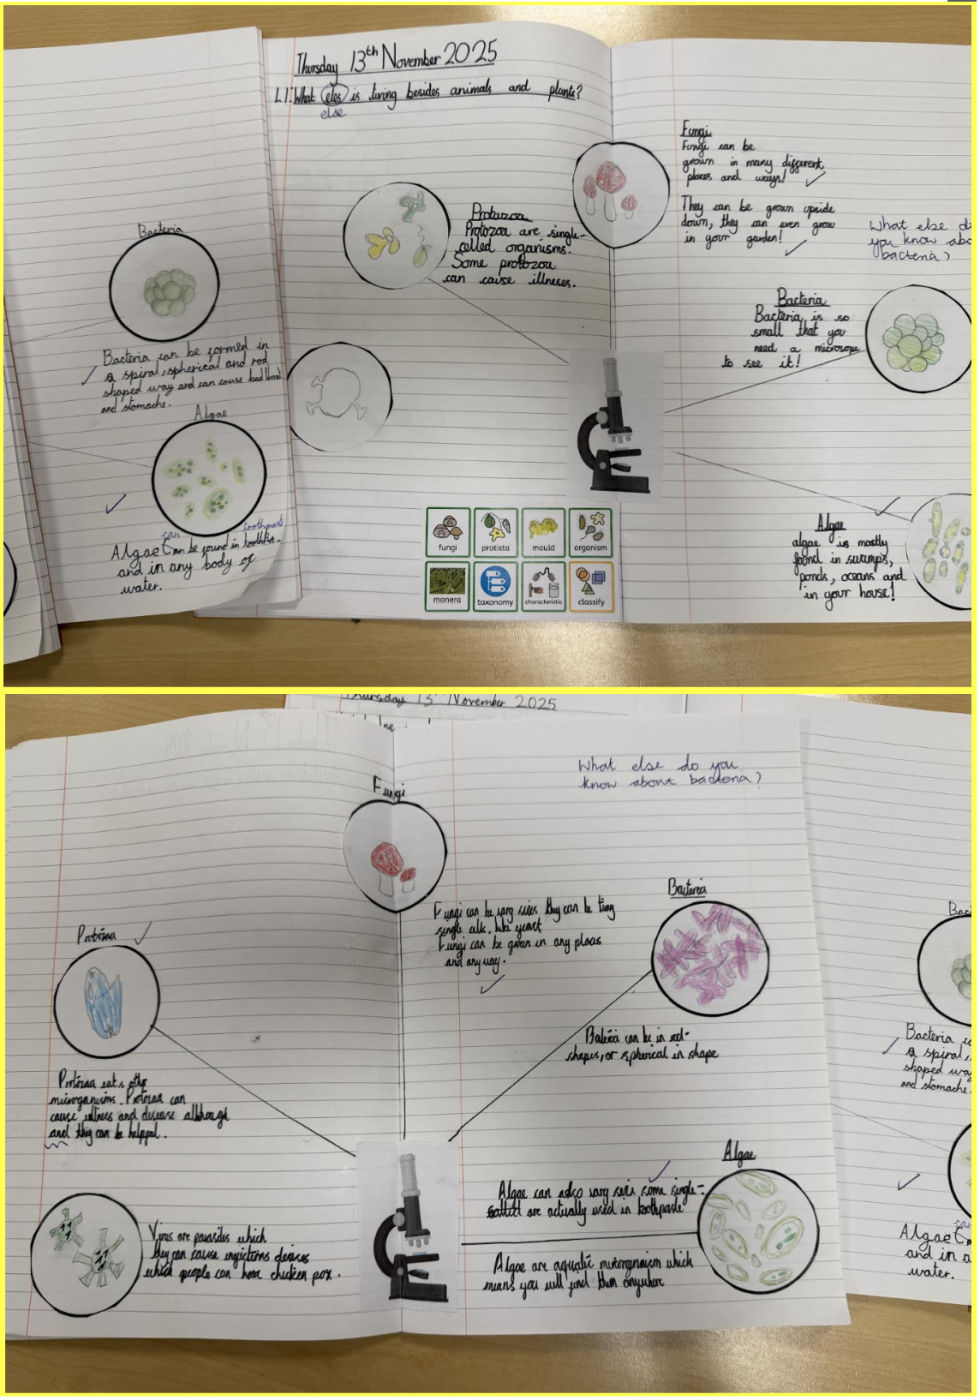 Thursday 13th November 2025
L.I. What eles is living besides animals and plants?
else
Bacteria
Bacteria can be formed in
a spiral, spherical and rod
shaped way and can cause bad
and stomache.
Algae
can toothpaste
Algae can be found in
and in any body of
water.
Protozoa
Protozoa are single-
celled organisms.
Some protozoa
can cause illneses.
Fungi
Fungi can be
grown in many different
places and ways!
They can be grown upside
down, they can even grow
in your garden!
What else d
you know abo
bacteria?
Bacteria
Bacteria is so
small that you
need a microscope
to see it!
Algae
algae is mostly
found in swamps,
ponds, oceans and
in your house!
fungi
protista
mould
organism
monera
taxonomy
characteristic
classify
Thursday 13th November 2025
What else do you
know about bacteria?
Fungi
Fungi can be vary sizes they can be tiny
single like yeast
Fungi can be grown in any places
and any way.
Bacteria
can be in rod-
shapes, or spherical in shape
Protozoa
Protozoa eats othe
microorganisms. Protozoa can
cause illness and disease although
and they can be helpful.
Virus are parasites which
they can cause
which people can have chicken pox.
Algae
Algae can also vary some single-
are actually used in toothpaste
Algae are aquatic which
means you will find them anywhere
Bac
Bacteria c
a spiral,
shaped wa
and stomache
can
Algae
and in a
water.